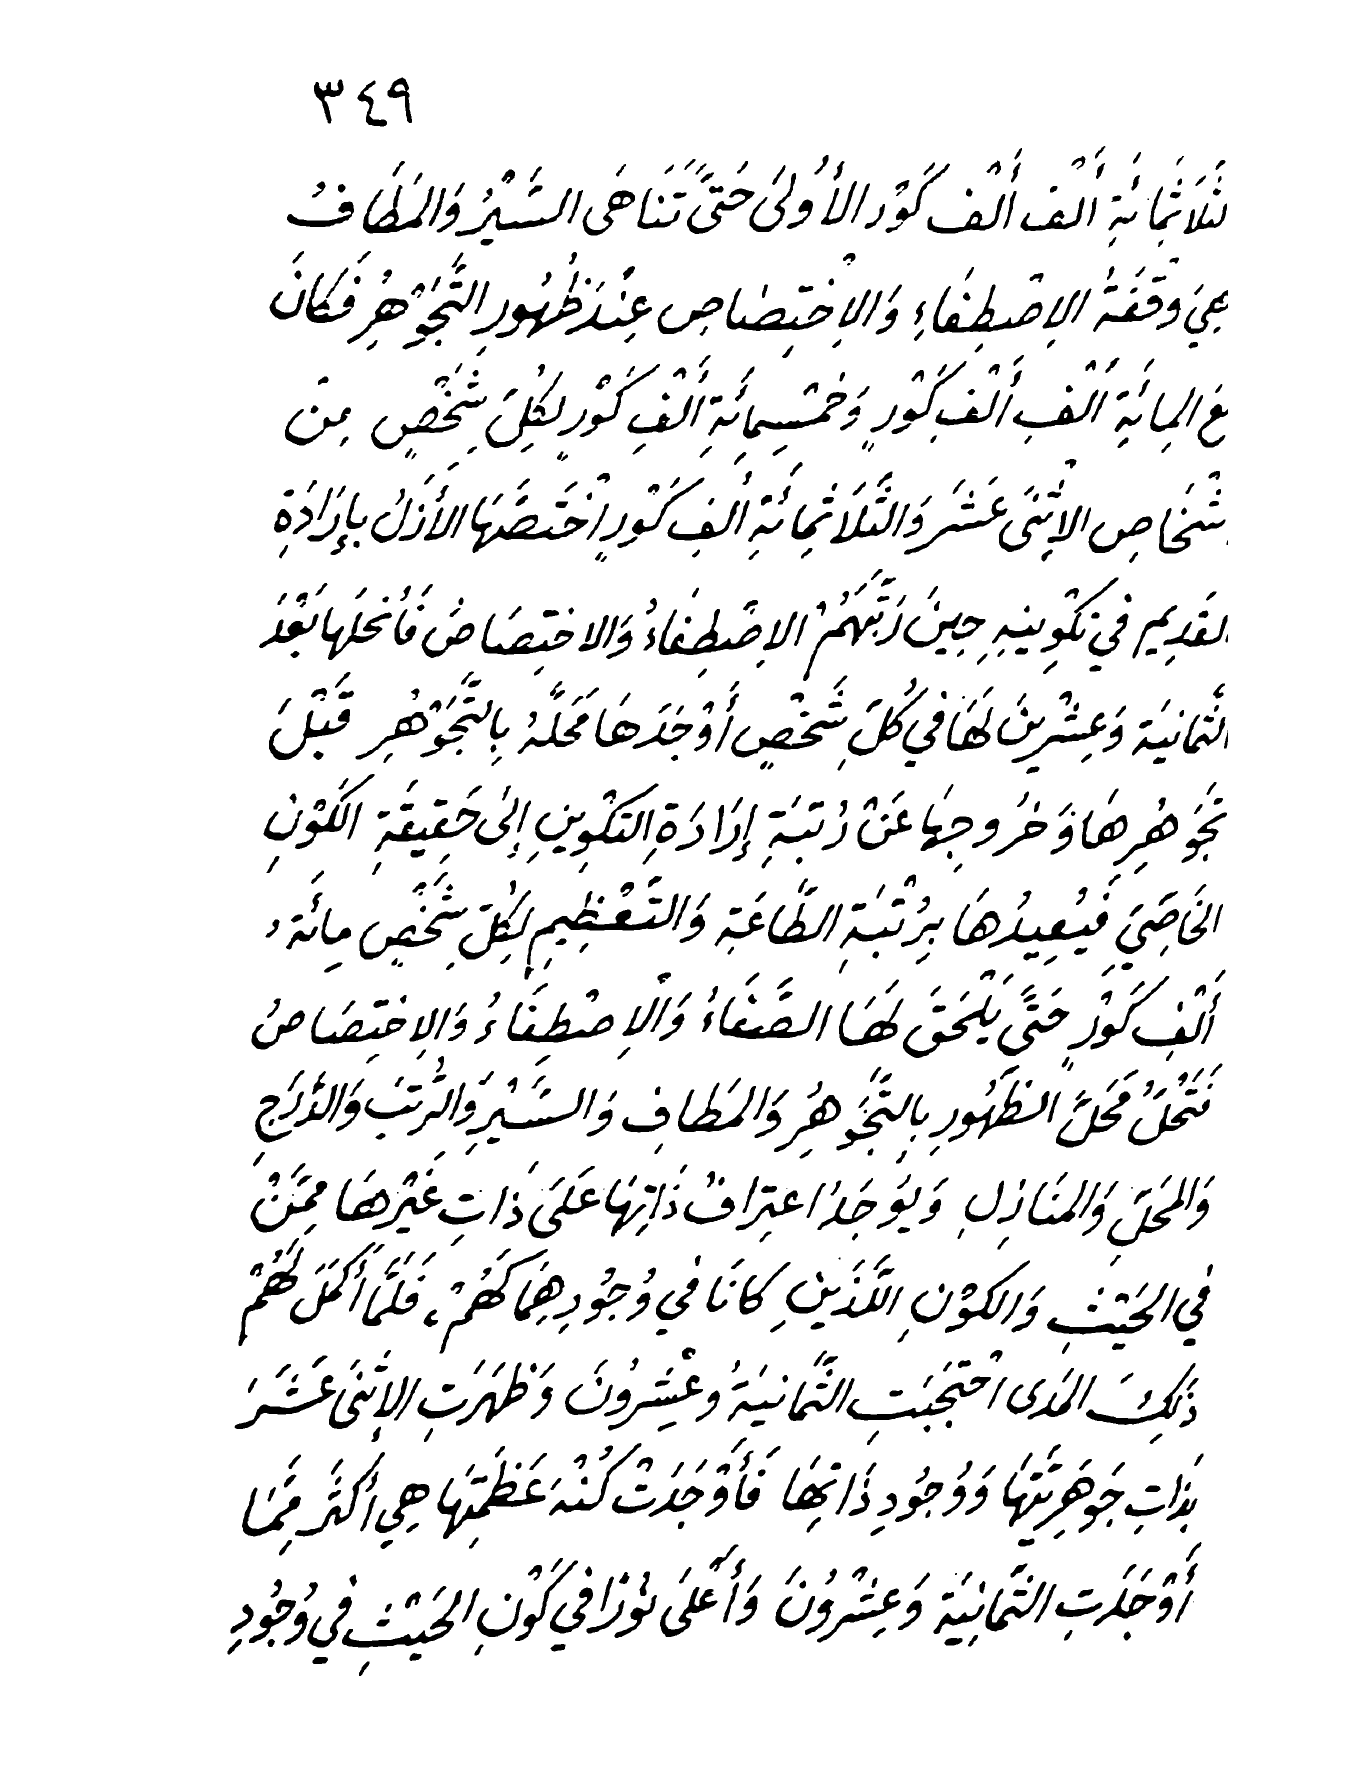 ٣٤٩
لثَلَاثُمِائَةِ أَلْف أَلْف كَوْر الأُولَى حَتَّى تَنَاهَى السَّيْرُ وَالمَطَافُ
هِيَ وَقْفَةُ الاِصْطِفَاءِ وَالاِخْتِصَاصِ عِنْدَ ظُهُورِ التَّجَوْهُرِ فَكَانَ
عَ المِائَةِ أَلْفِ أَلْفِ كَوْرٍ وَخَمْسِمِائَةِ أَلْفِ كَوْرٍ لِكُلِّ شَخْصٍ مِنْ
شْخَاصِ الاِثْنَى عَشَرَ وَالثَّلَاثُمِائَةِ أَلْفِ كَوْرٍ اخْتَصَّهَا الأَزَلُ بِإِرَادَةِ
القَدِيم فِي تَكْوِينِهِ حِينَ رَتَّبَهُمْ الاِصْطِفَاءُ وَالاختِصَاصُ فَأَنْحَلَها بَعْدَ
الثَمانِيَة وَعِشْرِينَ لَهَا فِي كُلِّ شَخْصٍ أَوْجَدَهَا مَحَلَّهُ بِالتَّجَوْهُرِ قَبْلَ
تَجَوْهُرِهَا وَخُرُوجِهَا عَنْ رُتْبَةِ إِرَادَةِ التَكْوِينِ إِلَى حَقِيقَةِ الكَوْنِ
الخَاصِّيِّ فَيُعِيدُهَا بِرُتْبَةِ الطَّاعَةِ وَالتَّعْظِيمِ لِكُلِّ شَخْصٍ مِائَةُ
أَلْفِ كَوْرٍ حَتَّى يَلْحَقَ لَهَا الصَّفَاءُ وَالْاِصْطِفَاءُ وَالِاختِصَاصُ
فَتَحْلُ مَحَلَّ الظهُورِ بِالتَّجَوْهُرِ وَالمَطافِ وَالسَّيْرِ وَالرُتَبَ وَالدَّرَجِ
وَالمَحَلِّ وَالمنَازِلِ وَيُوجَدُ اعتِرَافُ ذَاتِهَا عَلَى ذَاتِ غَيْرِهَا مِمَّنْ
فِي الحَيْثِ وَالكَوْنِ اللَّذَيْنِ كانَا في وُجُودِهِمَا كَهُمْ، فَلَمَّا أَكْمَلَ لَهُمْ
ذَلِكَ المَدَى احْتَجَبَتِ الثَّمانِيَةُ وعِشْرُونَ وَظَهَرَتِ الإِثْنَى عَشَرَ
بِذَاتِ جَوهَرِيَّتِهَا وَوُجُودِ ذَاتِهَا فَأَوْجَدَتْ كُنْهَ عَظَمَتِهَا هِي أَكثَرَ مِمَّا
أَوْجَدَتِ الثَمَّانِيَة وَعِشْرُونَ وَأَعْلَى نُوْرًا فِي كَوْنِ الحَيْثِ في وُجُودِ